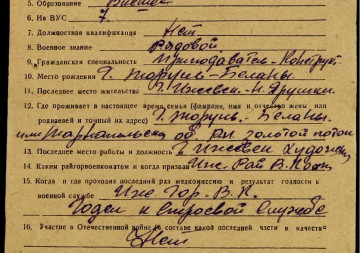 5. Образование Высшее
6. На ВУС 7.
7. Должностная квалификация Нет
8. Военное звание Рядовой
9. Гражданская специальность Преподаватель-Конструк.
10. Место рождения Г. Жоруль-Беланы.
11. Последнее место жительства Г. Ижевск-
12. Где проживает в настоящее время семья (фамилия, имя и отчество жены или
родителей и точный их адрес) Г. Жоруль. Беланы.
об. золотой поток
13. Последнее место работы и должность Г. Ижевск Художник
14. Каким райгорвоенкоматом и когда призван Иж. Рай В.К.
15. Когда и где проходил последний раз медкомиссию и результат годности к
военной службе Иж Гор. В.К.
Годен к Строевой Службе
16. Участие в Отечественной войне (в составе какой последней части в качестве
Нет